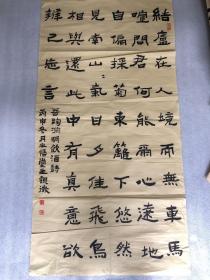 結廬在人境而無車馬
喧問君何能爾心遠地
自偏採菊東籬下悠然
見南山〻氣日夕佳飛鳥
相與還此中有真意欲
辨已忘言
晉陶淵明飲酒詩
丙申冬月